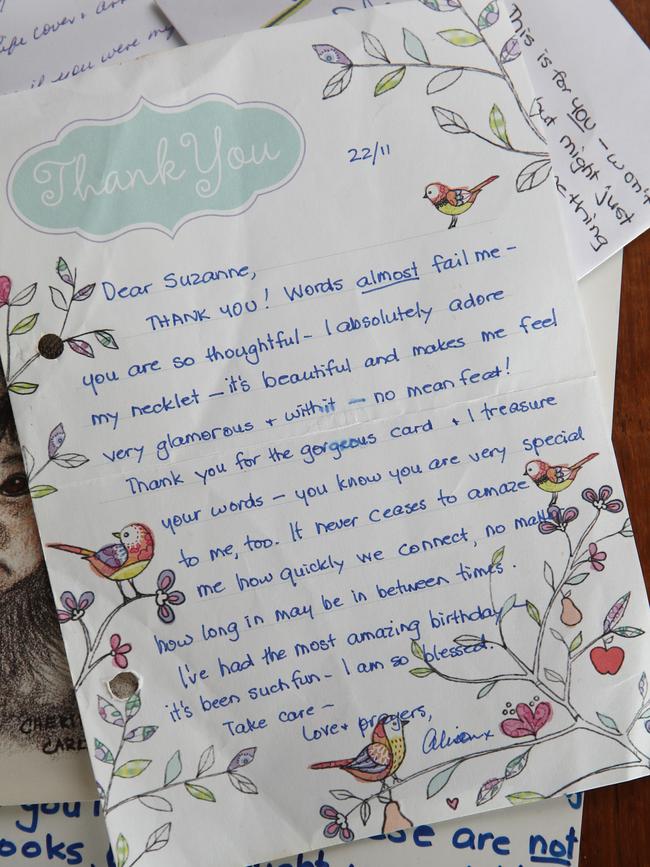 life cover +
if you were my
This is for you - won't
but might just
thing
Thank You
22/11
Dear Suzanne,
THANK YOU! Words almost fail me -
you are so thoughtful - I absolutely adore
my necklet - it's beautiful and makes me feel
very glamorous + withit - no mean feat!
Thank you for the gorgeous card + I treasure
your words - you know you are very special
to me, too. It never ceases to amaze
me how quickly we connect, no matter
how long in may be in between times.
I've had the most amazing birthday
it's been such fun - I am so blessed.
Take care -
Love + prayers,
Alison x
are not